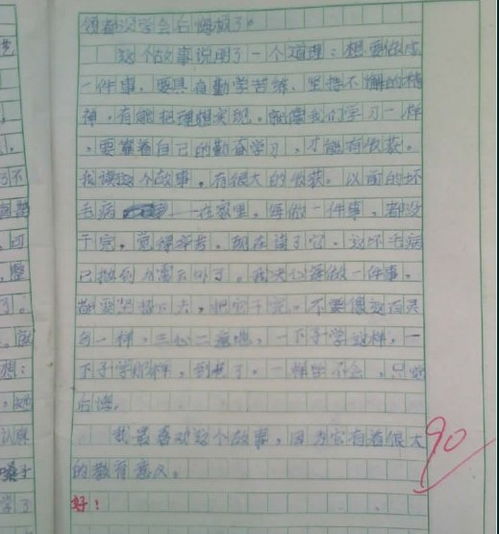 领都没学会后悔极了。
这个故事说明了一个道理：想要做成
一件事，要具有勤学苦练、坚持不懈的精
神，有能把理想实现。就像我们学习一样
，要靠着自己的勤奋学习，才能有收获。
我读这个故事，有很大的收获。以前的坏
毛病 一在家里，每做一件事，都没
干完，觉得辛苦。现在读了它，这坏毛病
已抛到九霄云外了。我决心每做一件事，
都要坚持下去，把它干完。不要像这百灵
鸟一样，三心二意地，一下子学这样，一
下子学那样，到老了，一样也不会，只好
后悔。
我最喜欢这个故事，因为它有着很大
的教育意义。
90
好！